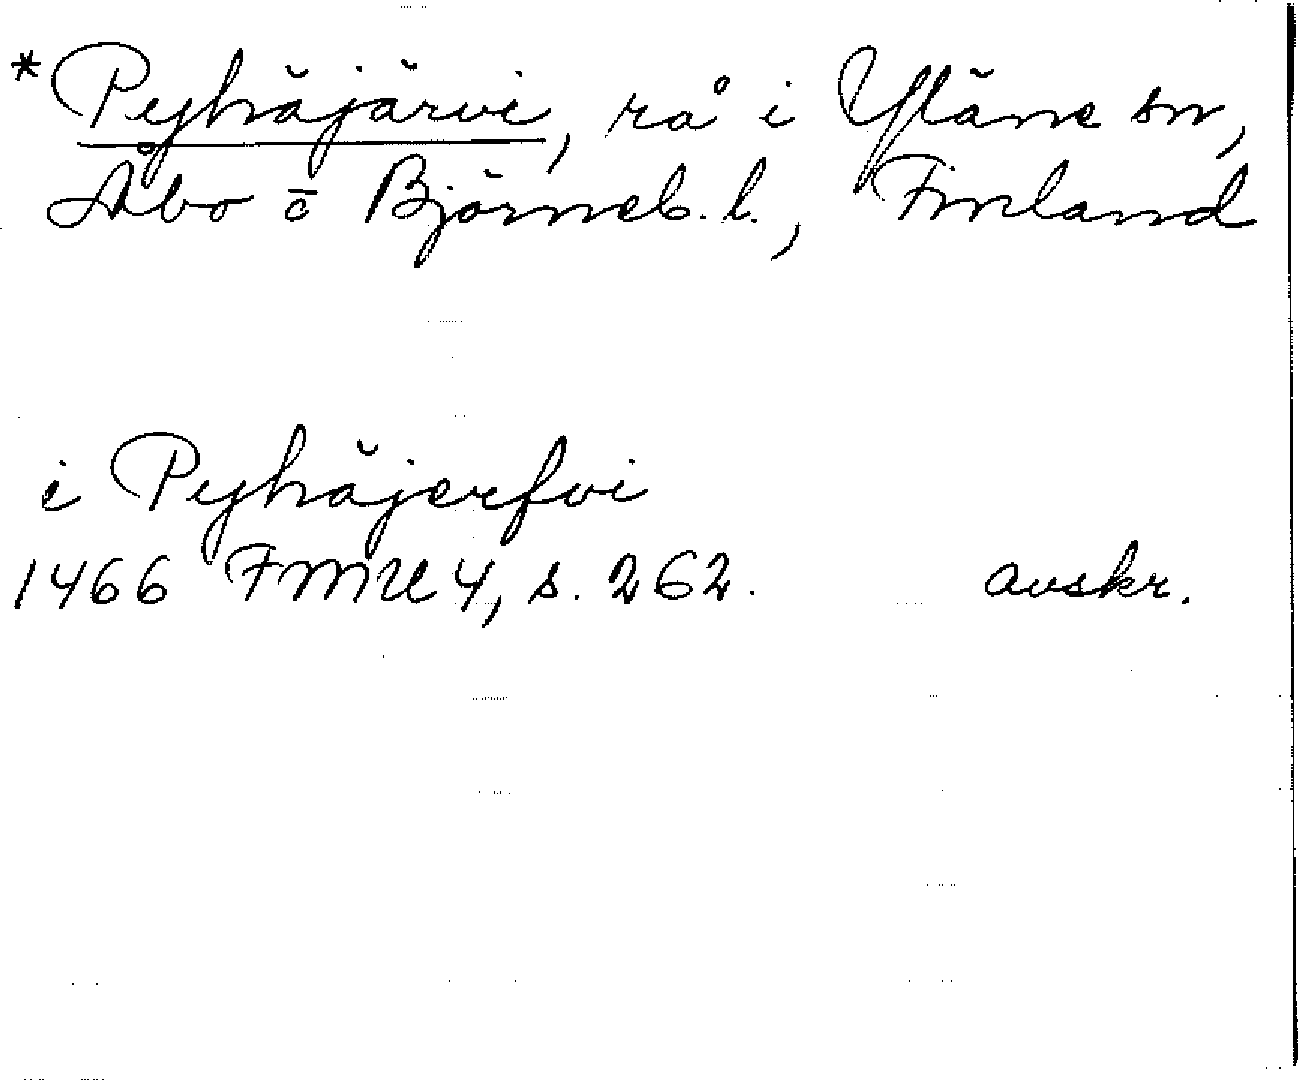 *Pyhäjärvi, rå i Yläne sn,
Åbo o Björneb. l., Finland
i Pyhäjerfvi
1466 FMU 4, s. 262. avskr.